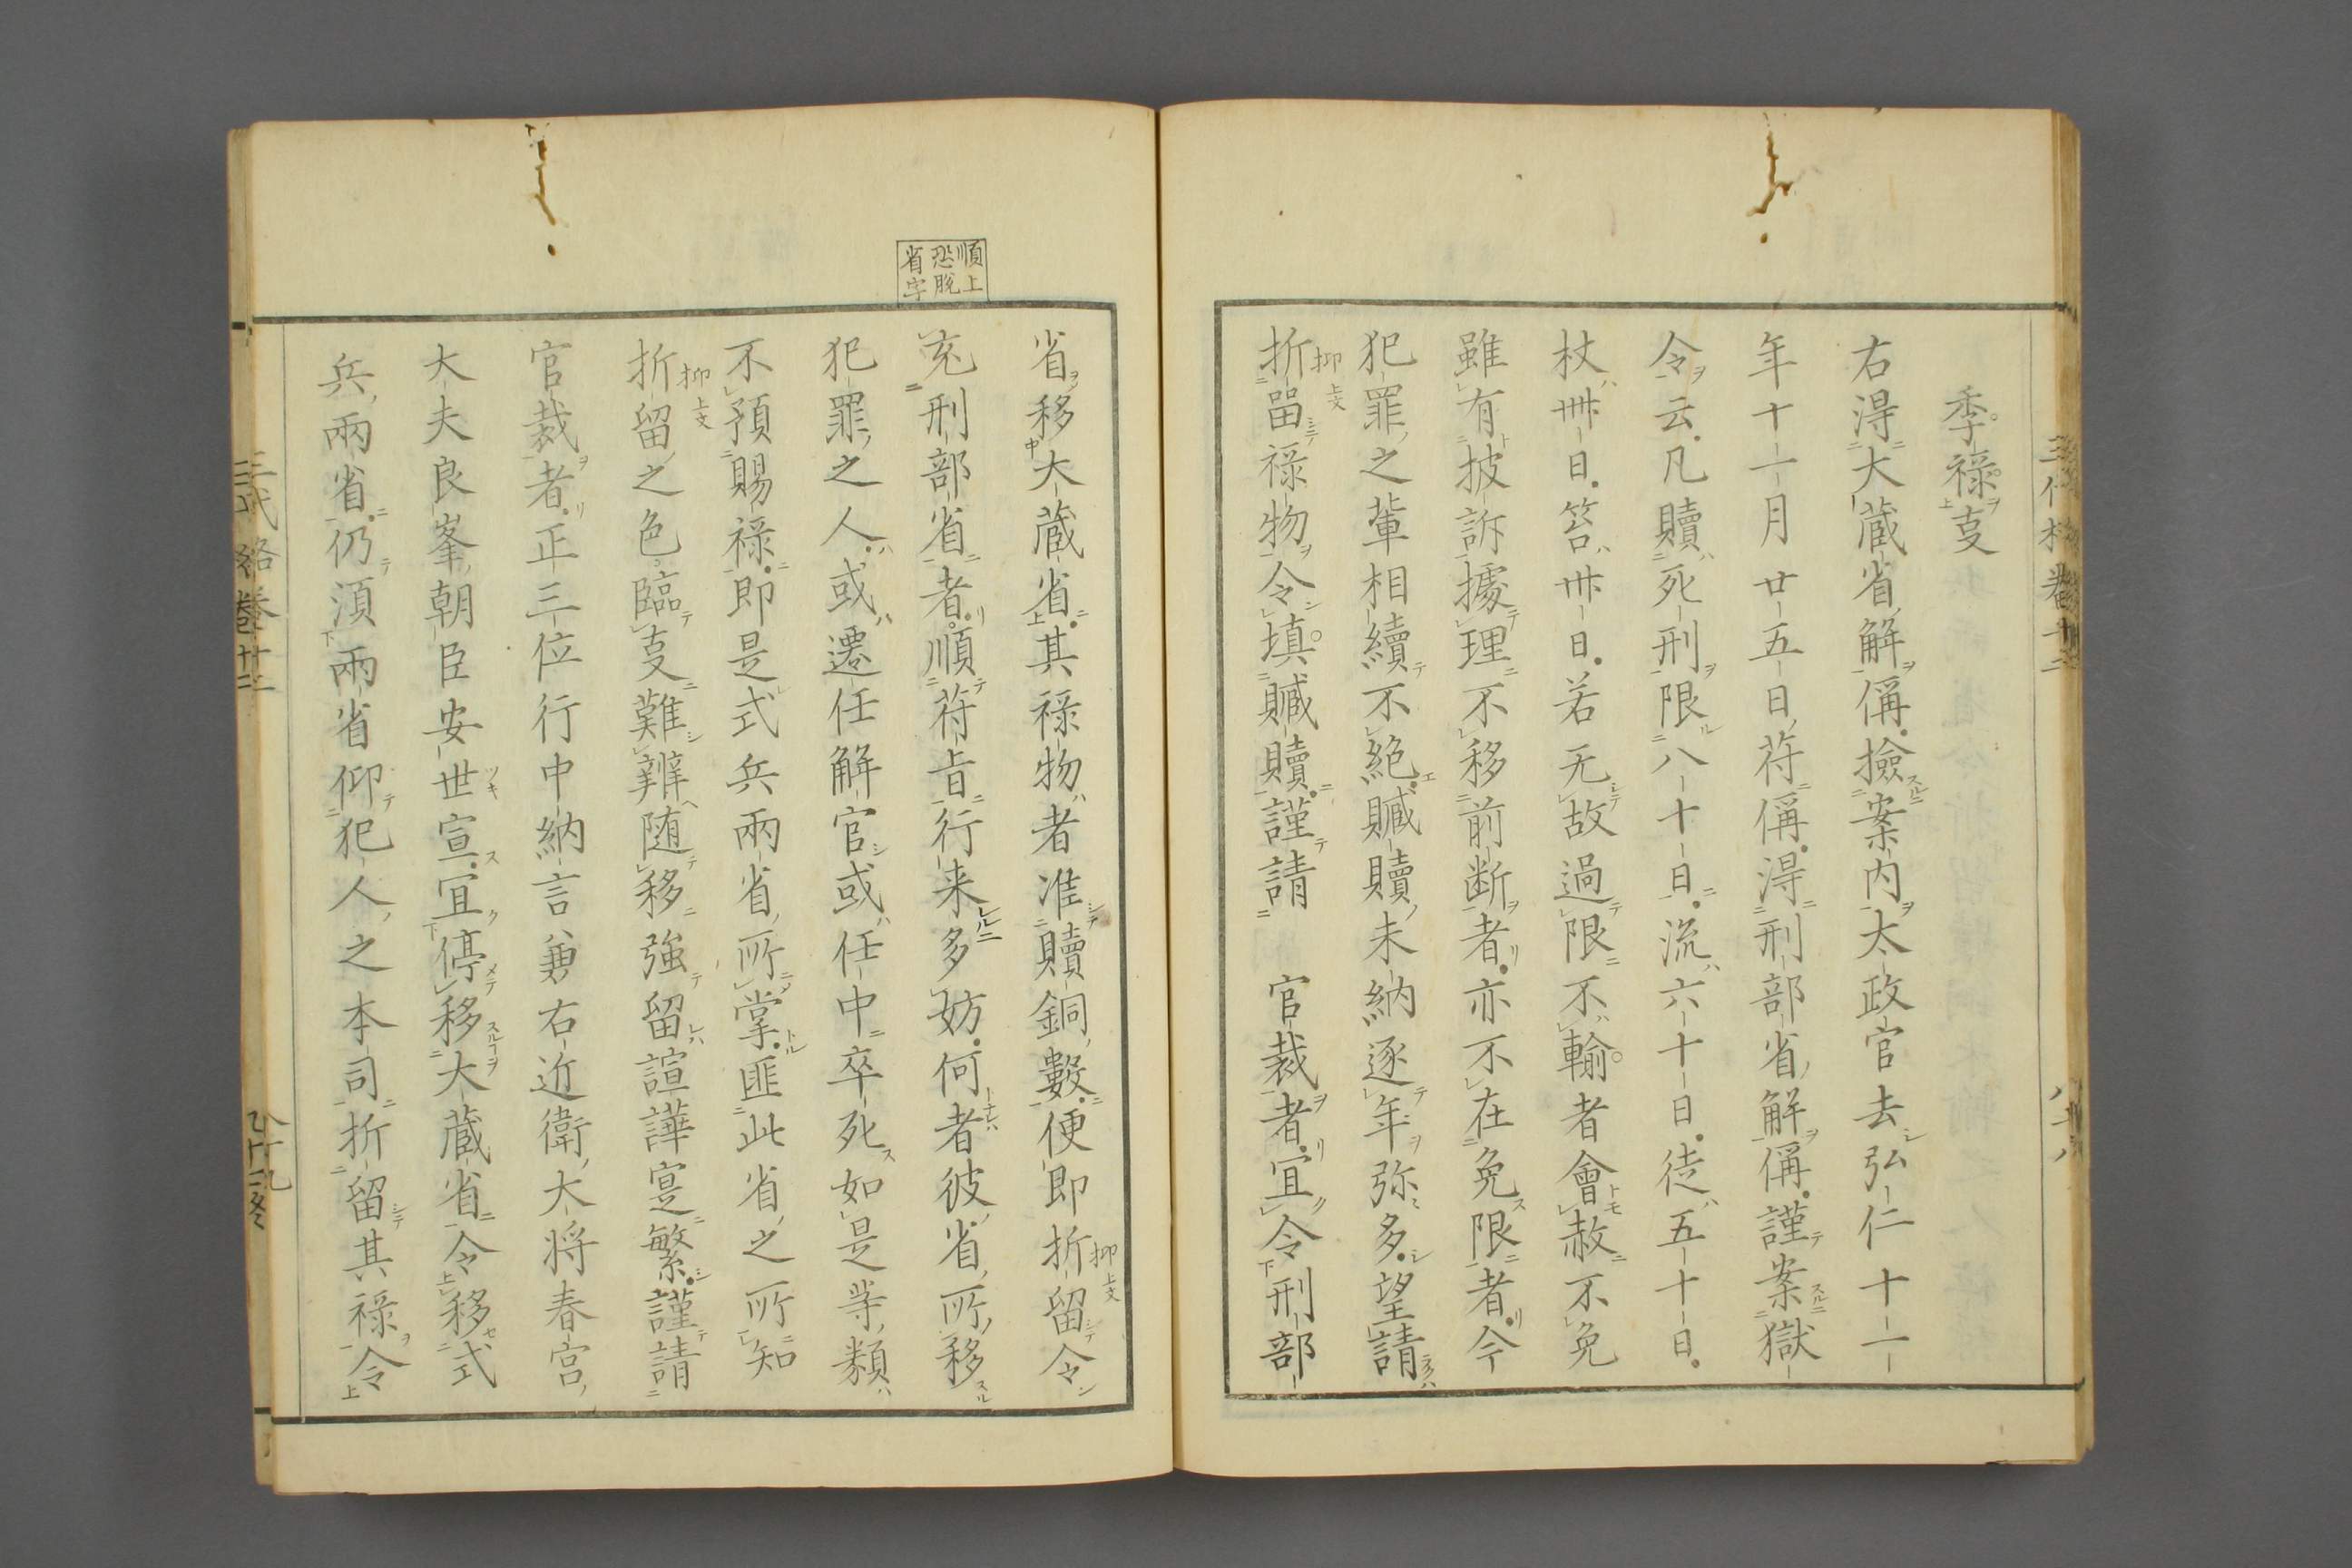 季祿㕝
右得大蔵省解偁撿案内太政官去弘仁十一
年十一月廿五日符偁得刑部省解偁謹案獄
令云凡贖死刑限八十日流六十日徒五十日
杖卌日笞卅日若无故過限不輸者會赦不免
雖有披訴據理不移前断者亦不在免限者今
犯罪之輩相續不絶贓贖未納逐年弥多望請
折留祿物令填贓贖謹請　官裁者宜令刑部
抑上文
順上恐脱省字
省移大蔵省其祿物者准贖銅數便即折留令
抑上文
充刑部省者順符旨行来多妨何者彼省所移
犯罪之人或遷任解官或任中卒死如是等類
不預賜祿即是式兵兩省所掌匪此省之所知
折留之色臨㕝難辨随移強留諠譁寔繁謹請
抑上文
官裁者正三位行中納言兼右近衛大将春宮
大夫良峯朝臣安世宣宜停移大蔵省令移式
兵兩省仍湏兩省仰犯人之本司折留其祿令